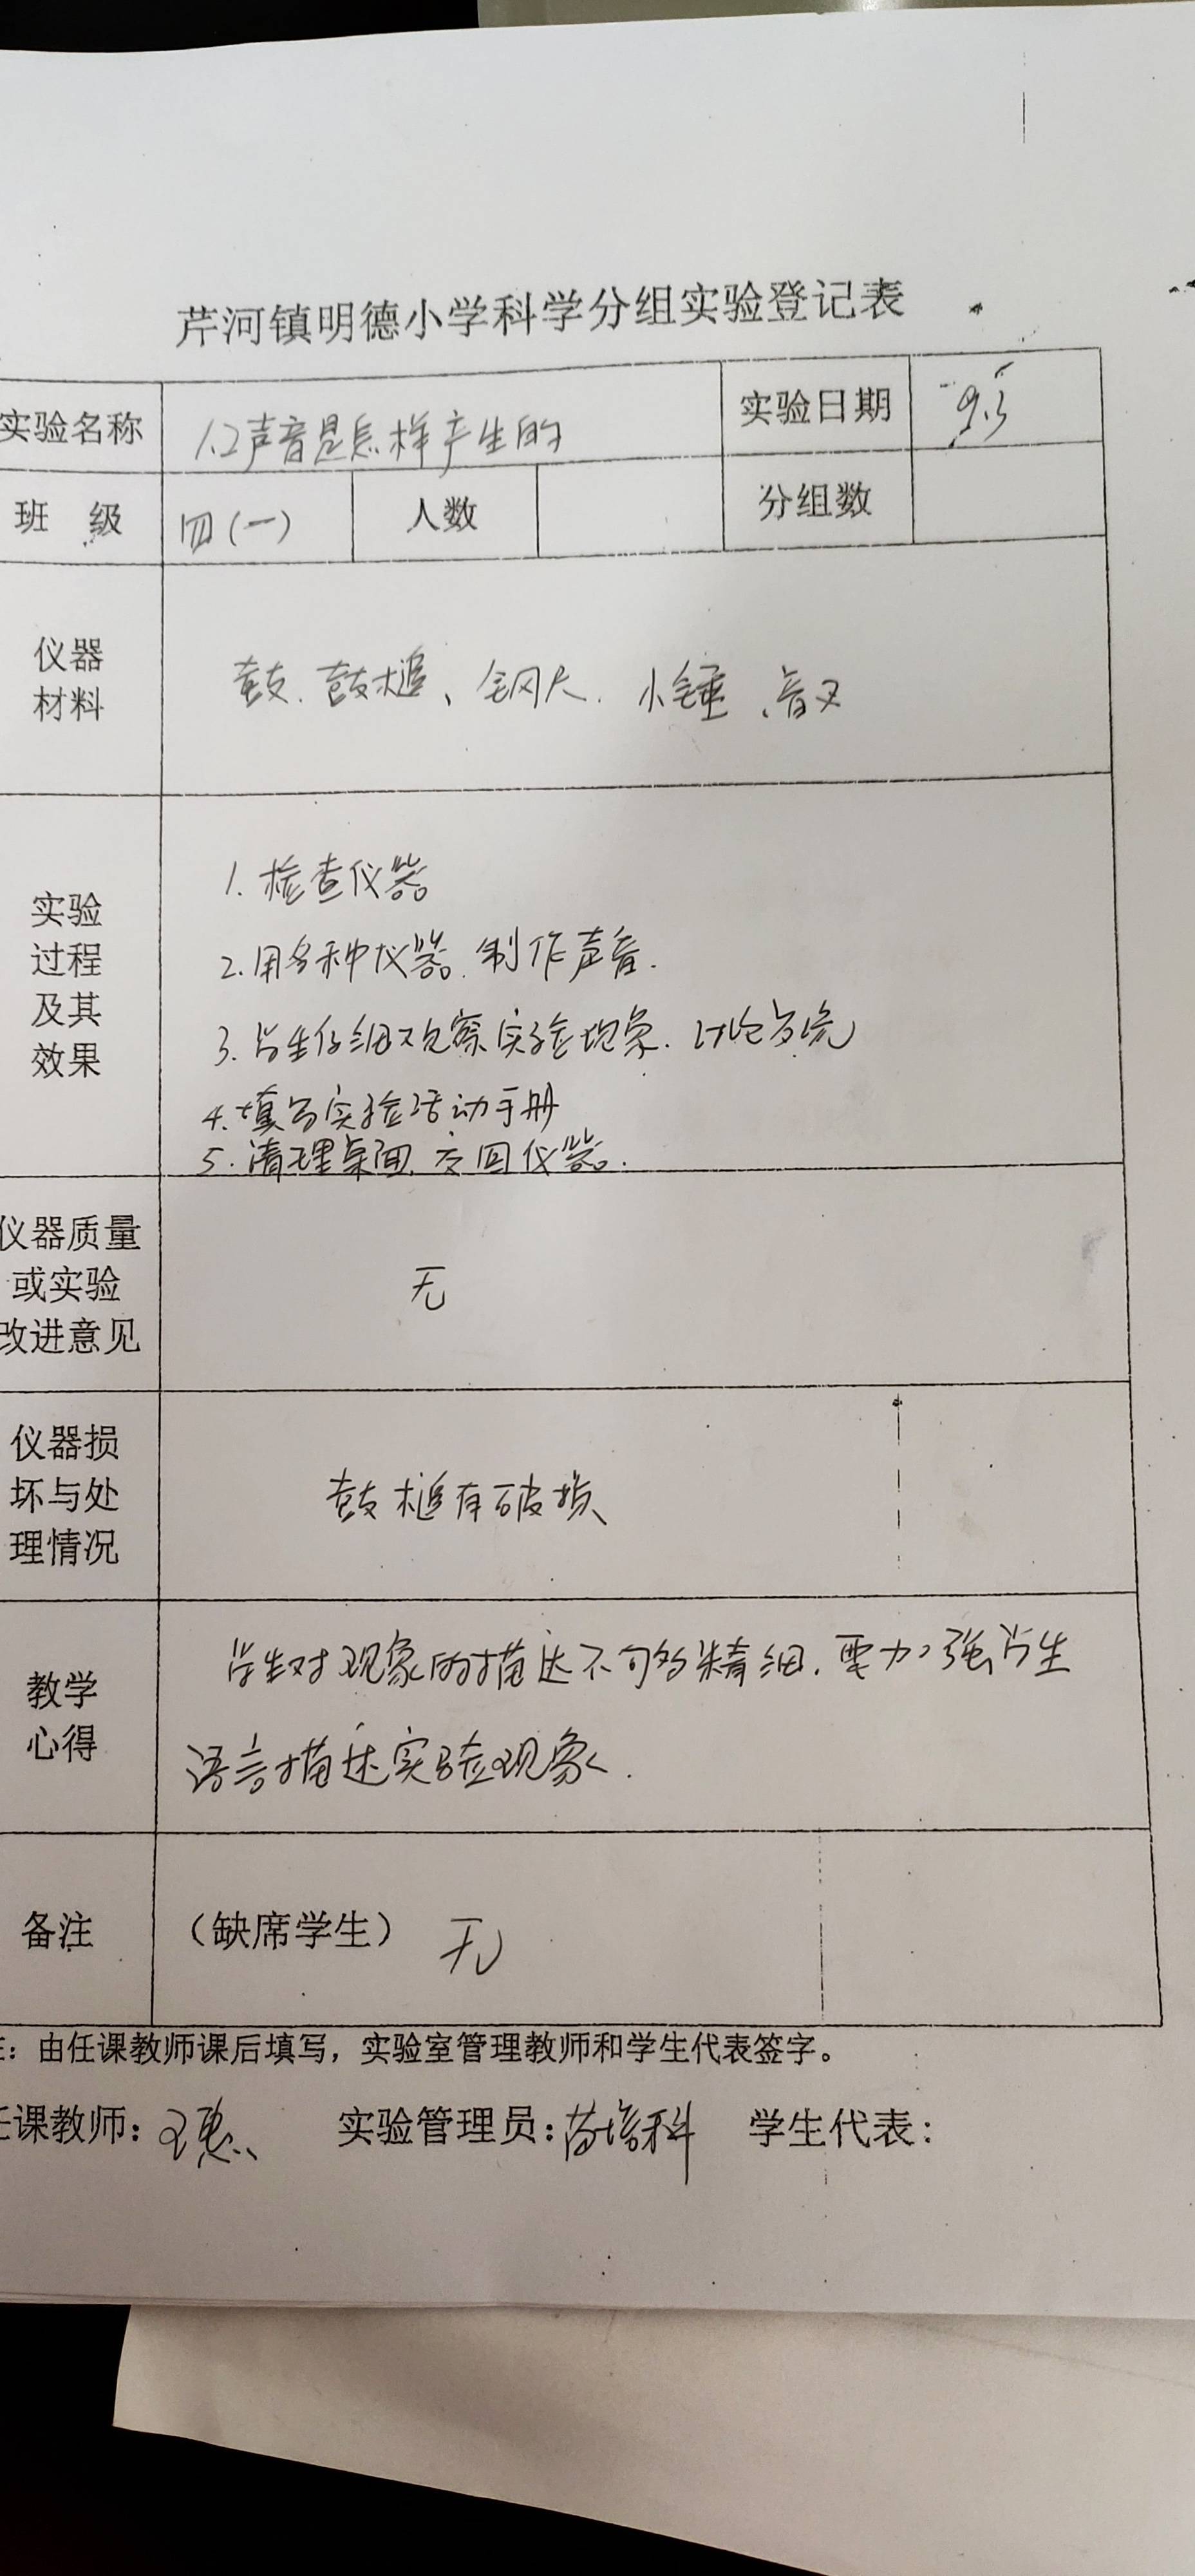 芹河镇明德小学科学分组实验登记表
实验名称 1.2声音是怎样产生的 实验日期 9.5
班 级 四(一) 人数 分组数
仪器
材料
鼓、鼓槌、钢尺、小锤、音叉
实验
过程
及其
效果
1. 检查仪器
2. 用多种仪器、制作声音.
3. 学生仔细观察实验现象. 讨论交流
4. 填写实验活动手册
5. 清理桌面、交回仪器.
仪器质量
或实验
改进意见
无
仪器损
坏与处
理情况
鼓槌有破损
教学
心得
学生对现象的描述不够精细. 要加强学生
语言描述实验现象.
备注 (缺席学生) 无
由任课教师课后填写，实验室管理教师和学生代表签字。
任课教师: 王惠 实验管理员: 培科 学生代表: